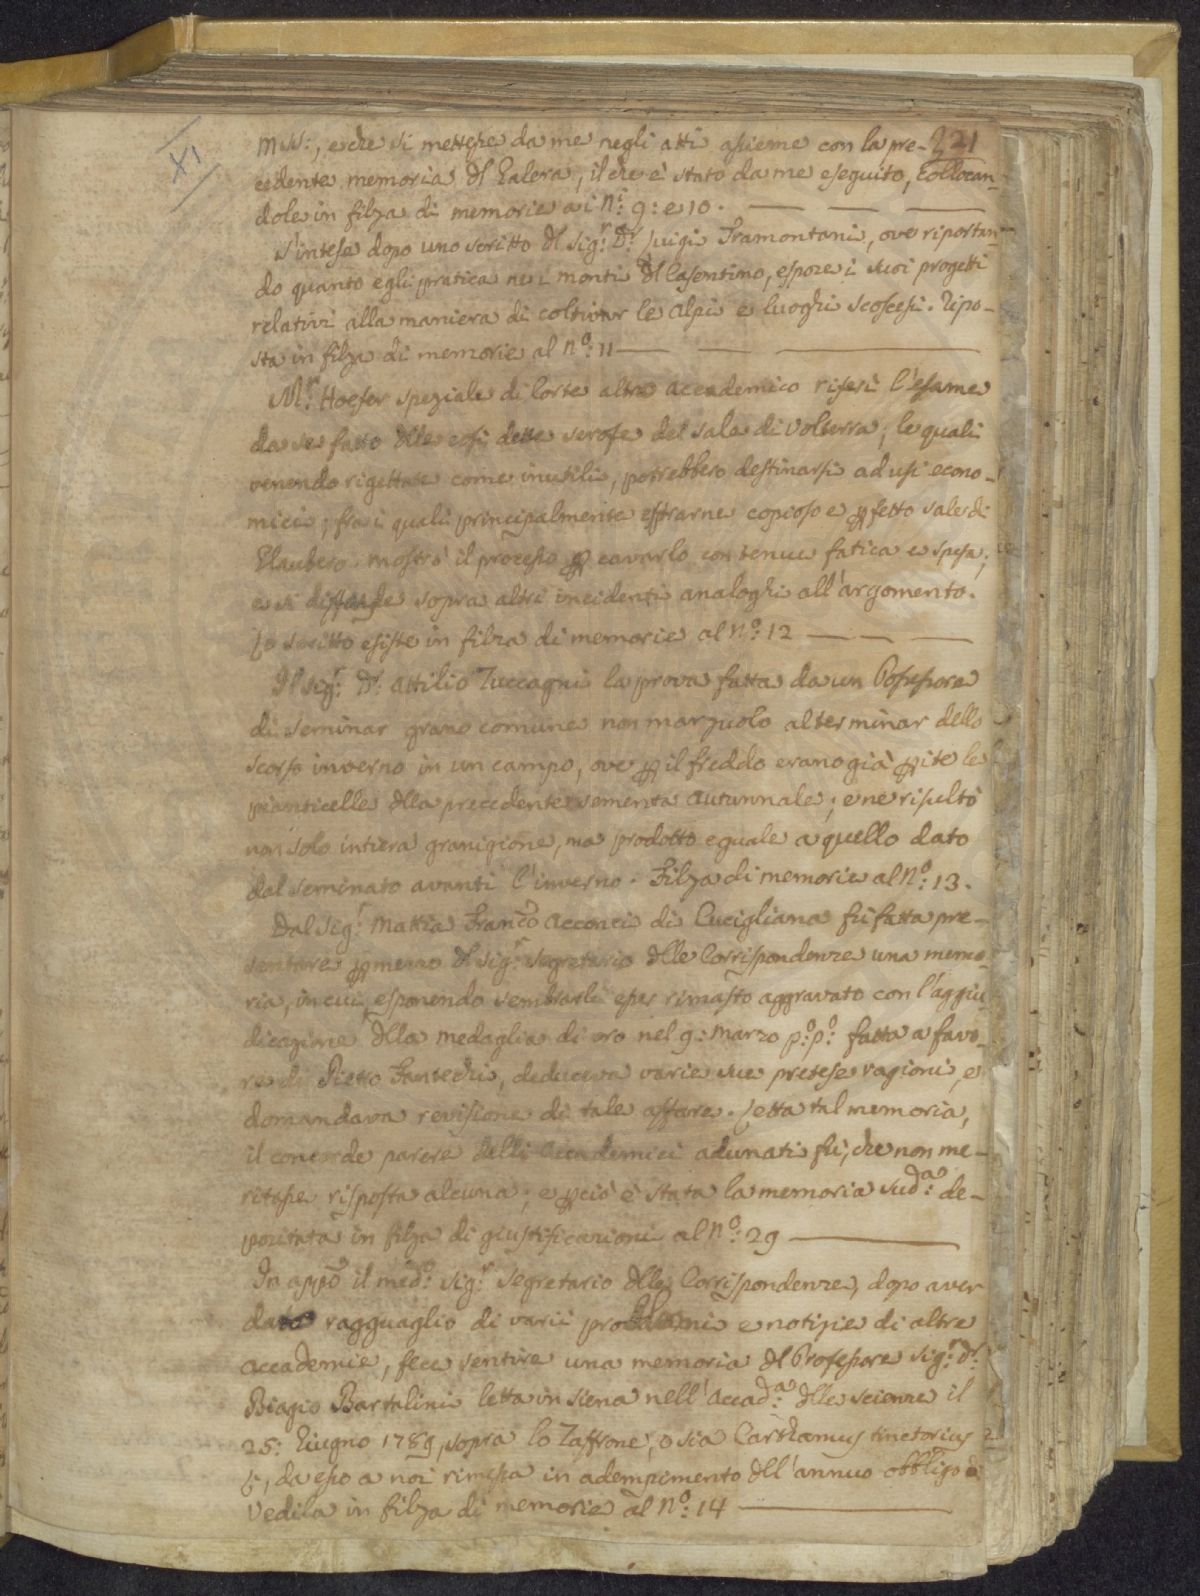 XI
221
mss:, e che si mettesse da me negli atti assieme con la pre-
cedente memoria dl Galera, il che è stato da me eseguito, collocan-
dole in filza di memorie ai n.i 9: e 10.
S'intese dopo uno scritto dl Sig.r D.r Luigi Tramontani, ove riportan-
do quanto egli pratica ne i monti dl Casentino, espone i suoi progetti
relativi alla maniera di coltivar le alpi e luoghi scoscesi. Ripo-
sta in filza di memorie al n.o: 11
M.r Hoefer speziale di Corte altro accademico riferì l'esame
da se fatto dlle così dette serofe del sale di Volterra; le quali
venendo rigettate come inutili, potrebbero destinarsi ad usi econo-
mici; fra i quali principalmente estrarne copioso e pfetto sale di
Glaubero. mostrò il processo p cavarlo con tenue fatica e spesa;
e si diffonde sopra altri incidenti analoghi all'argomento.
Lo scritto esiste in filza di memorie al n.o: 12
Il Sig.r D.r Attilio Zuccagni la prova fatta da un Possessore
di seminar grano comune non marzuolo al terminar dello
scorso inverno in un campo, ove p il freddo erano già pite le
pianticelle dlla precedente sementa autunnale; e ne risultò
non solo intiera granigione, ma prodotto eguale a quello dato
dal seminato avanti l'inverno. Filza di memorie al n.o: 13.
Dal Sig.r Mattia Franc.o Acconci di Cucigliana fù fatta pre-
sentare p mezzo dl Sig.r Segretario dlle Corrispondenze una memo-
ria, in cui esponendo sembrarli esser rimasto aggravato con l'aggiu-
dicazione dlla medaglia di oro nel 9: marzo p.o p.o: fatta a favo-
re di Pietro Fantechi, deduceva varie sue pretese ragioni, e
domandava revisione di tale affare. Letta tal memoria,
il concorde parere delli Accademici adunati fù, che non me-
ritasse risposta alcuna; e pciò è stata la memoria sud.a: de-
positata in filza di giustificazioni al n.o: 29
In app.o il med.o: Sig.r Segretario dlle Corrispondenze, dopo aver
dato ragguaglio di varii e notizie di altre
accademie, fece sentire una memoria dl Professore Sig.r D.r
Biagio Bartalini letta in Siena nell'Accad.a: dlle scienze il
25: Giugno 1789, sopra lo Zaffrone, o sia Carthamus tinctorius
L, da esso a noi rimessa in adempimento dll'annuo obbligo.
Vedila in filza di memorie al n.o: 14